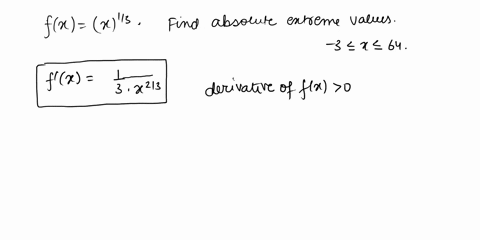 f(x) = (x)^{1/3}. Find absolute extreme values.
-3 ≤ x ≤ 64.
f'(x) = 1 / (3 · x^{2/3}) derivative of f(x) > 0